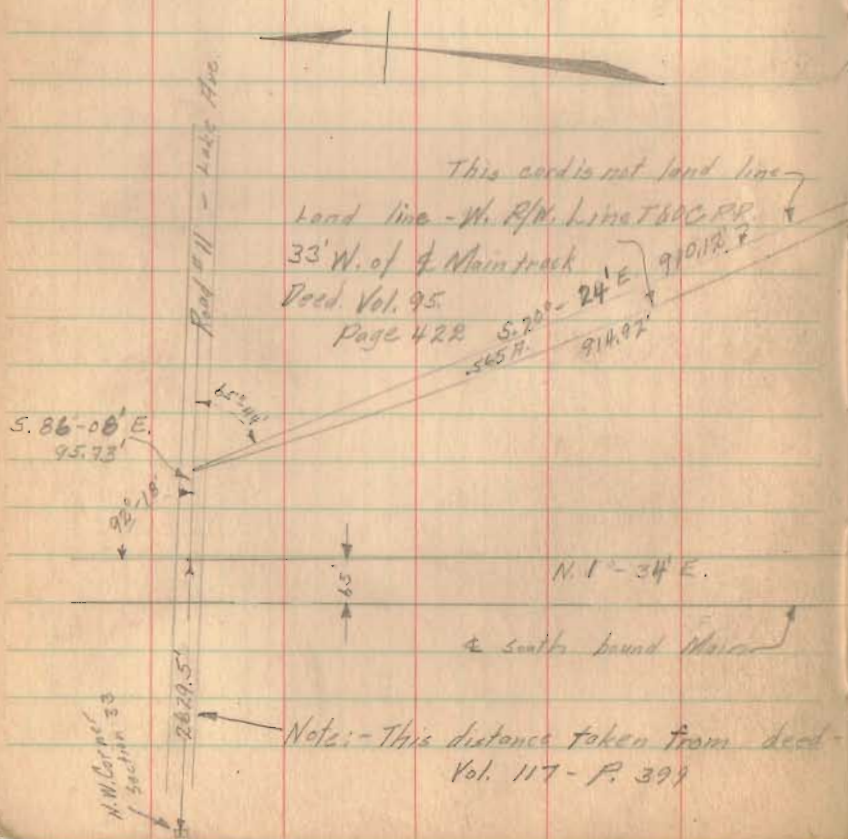 Road #11 - Lake Ave.
This cord is not land line
Land line - W. R/W. Line T&OC RR.
33' W. of ℄ Main track
Deed. Vol. 95.
Page 422
S. 20° - 24' E
910.12'
.565 A.
914.92'
65°-44'
S. 86-08' E.
95.73'
92°-18'
65'
N. 1° - 34' E.
℄ south bound Main
2629.5'
N.W. Corner
Section 33
Note:- This distance taken from deed-
Vol. 117 - P. 399